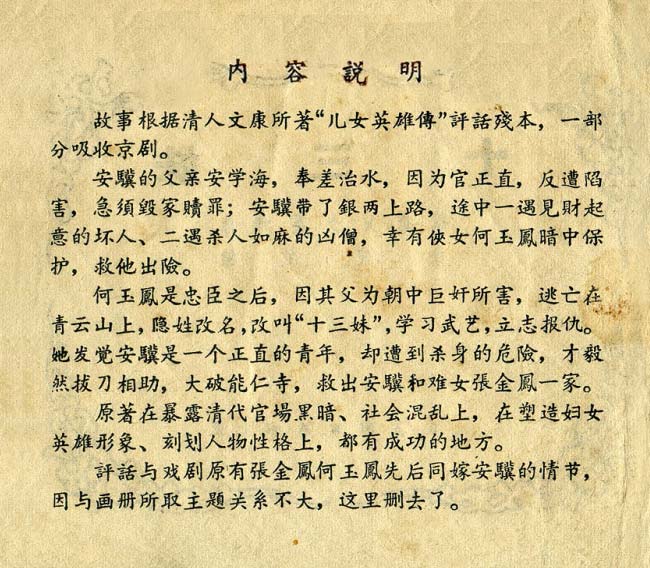 内容説明
故事根据清人文康所著“儿女英雄傳”評話殘本，一部
分吸收京剧。
安驥的父亲安学海，奉差治水，因为官正直，反遭陷
害，急須毀家贖罪；安驥带了銀两上路，途中一遇見財起
意的坏人、二遇杀人如麻的凶僧，幸有俠女何玉鳳暗中保
护，救他出險。
何玉鳳是忠臣之后，因其父为朝中巨奸所害，逃亡在
青云山上，隐姓改名，改叫“十三妹”，学习武艺，立志报仇。
她发觉安驥是一个正直的青年，却遭到杀身的危險，才毅
然拔刀相助，大破能仁寺，救出安驥和难女張金鳳一家。
原著在暴露清代官場黑暗、社会混乱上，在塑造妇女
英雄形象、刻划人物性格上，都有成功的地方。
評話与戏剧原有張金鳳何玉鳳先后同嫁安驥的情节，
因与画册所取主题关系不大，这里删去了。